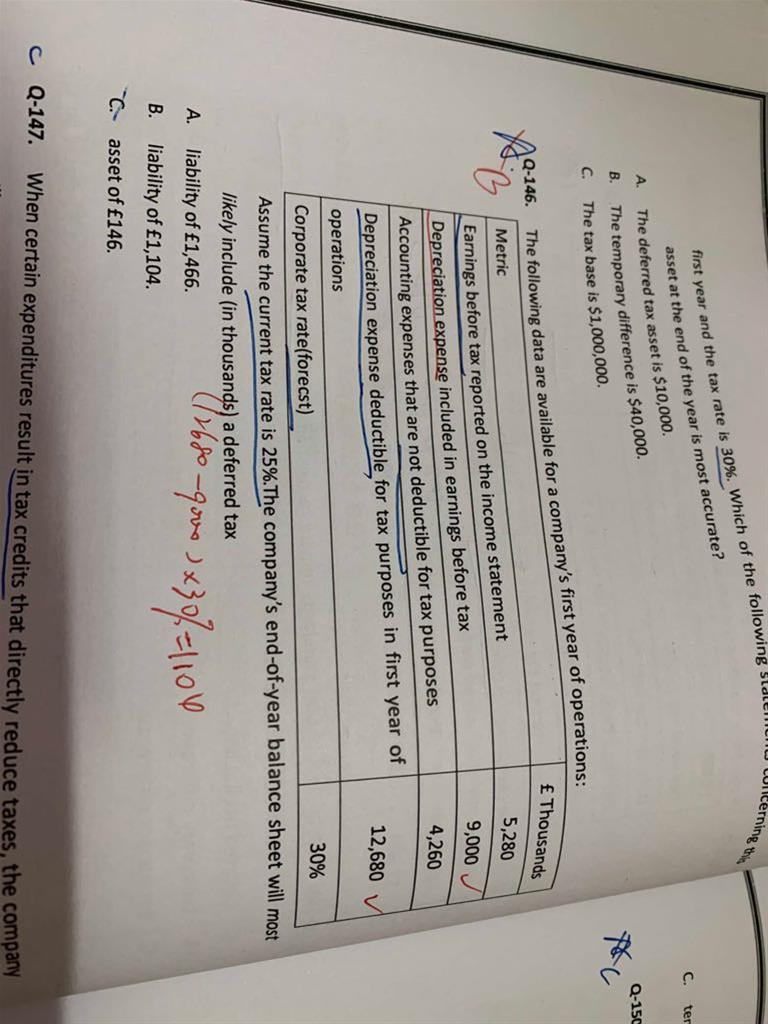 first year and the tax rate is 30%. Which of the following statements concerning this
asset at the end of the year is most accurate?
A. The deferred tax asset is $10,000.
B. The temporary difference is $40,000.
C. The tax base is $1,000,000.
A B
Q-146. The following data are available for a company's first year of operations:
Metric £ Thousands
Earnings before tax reported on the income statement 5,280
Depreciation expense included in earnings before tax 9,000 ✓
Accounting expenses that are not deductible for tax purposes 4,260
Depreciation expense deductible for tax purposes in first year of
operations 12,680 ✓
Corporate tax rate(forecst) 30%
Assume the current tax rate is 25%.The company's end-of-year balance sheet will most
likely include (in thousands) a deferred tax
(12680-9000)×30%=1104
A. liability of £1,466.
B. liability of £1,104.
C. asset of £146.
C Q-147. When certain expenditures result in tax credits that directly reduce taxes, the company
C. ter
Q-150
C